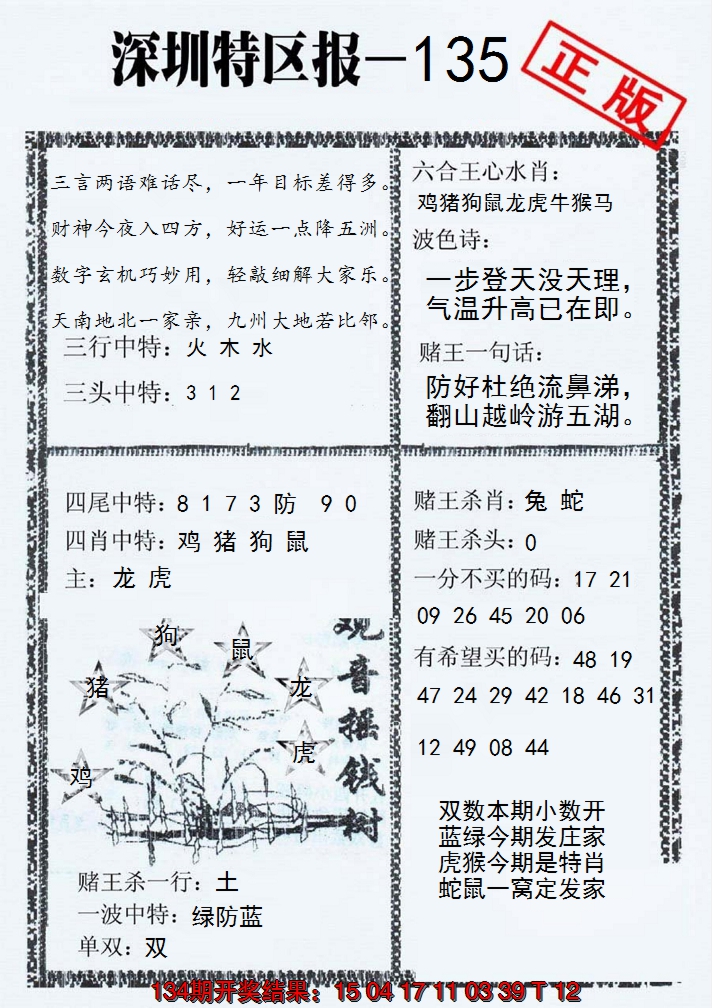 深圳特区报—135
正版
三言两语难话尽，一年目标差得多。
财神今夜入四方，好运一点降五洲。
数字玄机巧妙用，轻敲细解大家乐。
天南地北一家亲，九州大地若比邻。
三行中特：火 木 水
三头中特：3 1 2
六合王心水肖：
鸡猪狗鼠龙虎牛猴马
波色诗：
一步登天没天理，
气温升高已在即。
赌王一句话：
防好杜绝流鼻涕，
翻山越岭游五湖。
四尾中特：8 1 7 3 防 9 0
四肖中特：鸡 猪 狗 鼠
主：龙 虎
狗
鼠
猪
龙
虎
鸡
观音摇钱树
赌王杀一行：土
一波中特：绿防蓝
单双：双
赌王杀肖：兔 蛇
赌王杀头：0
一分不买的码：17 21
09 26 45 20 06
有希望买的码：48 19
47 24 29 42 18 46 31
12 49 08 44
双数本期小数开
蓝绿今期发庄家
虎猴今期是特肖
蛇鼠一窝定发家
134期开奖结果：15 04 17 11 03 39 T 12